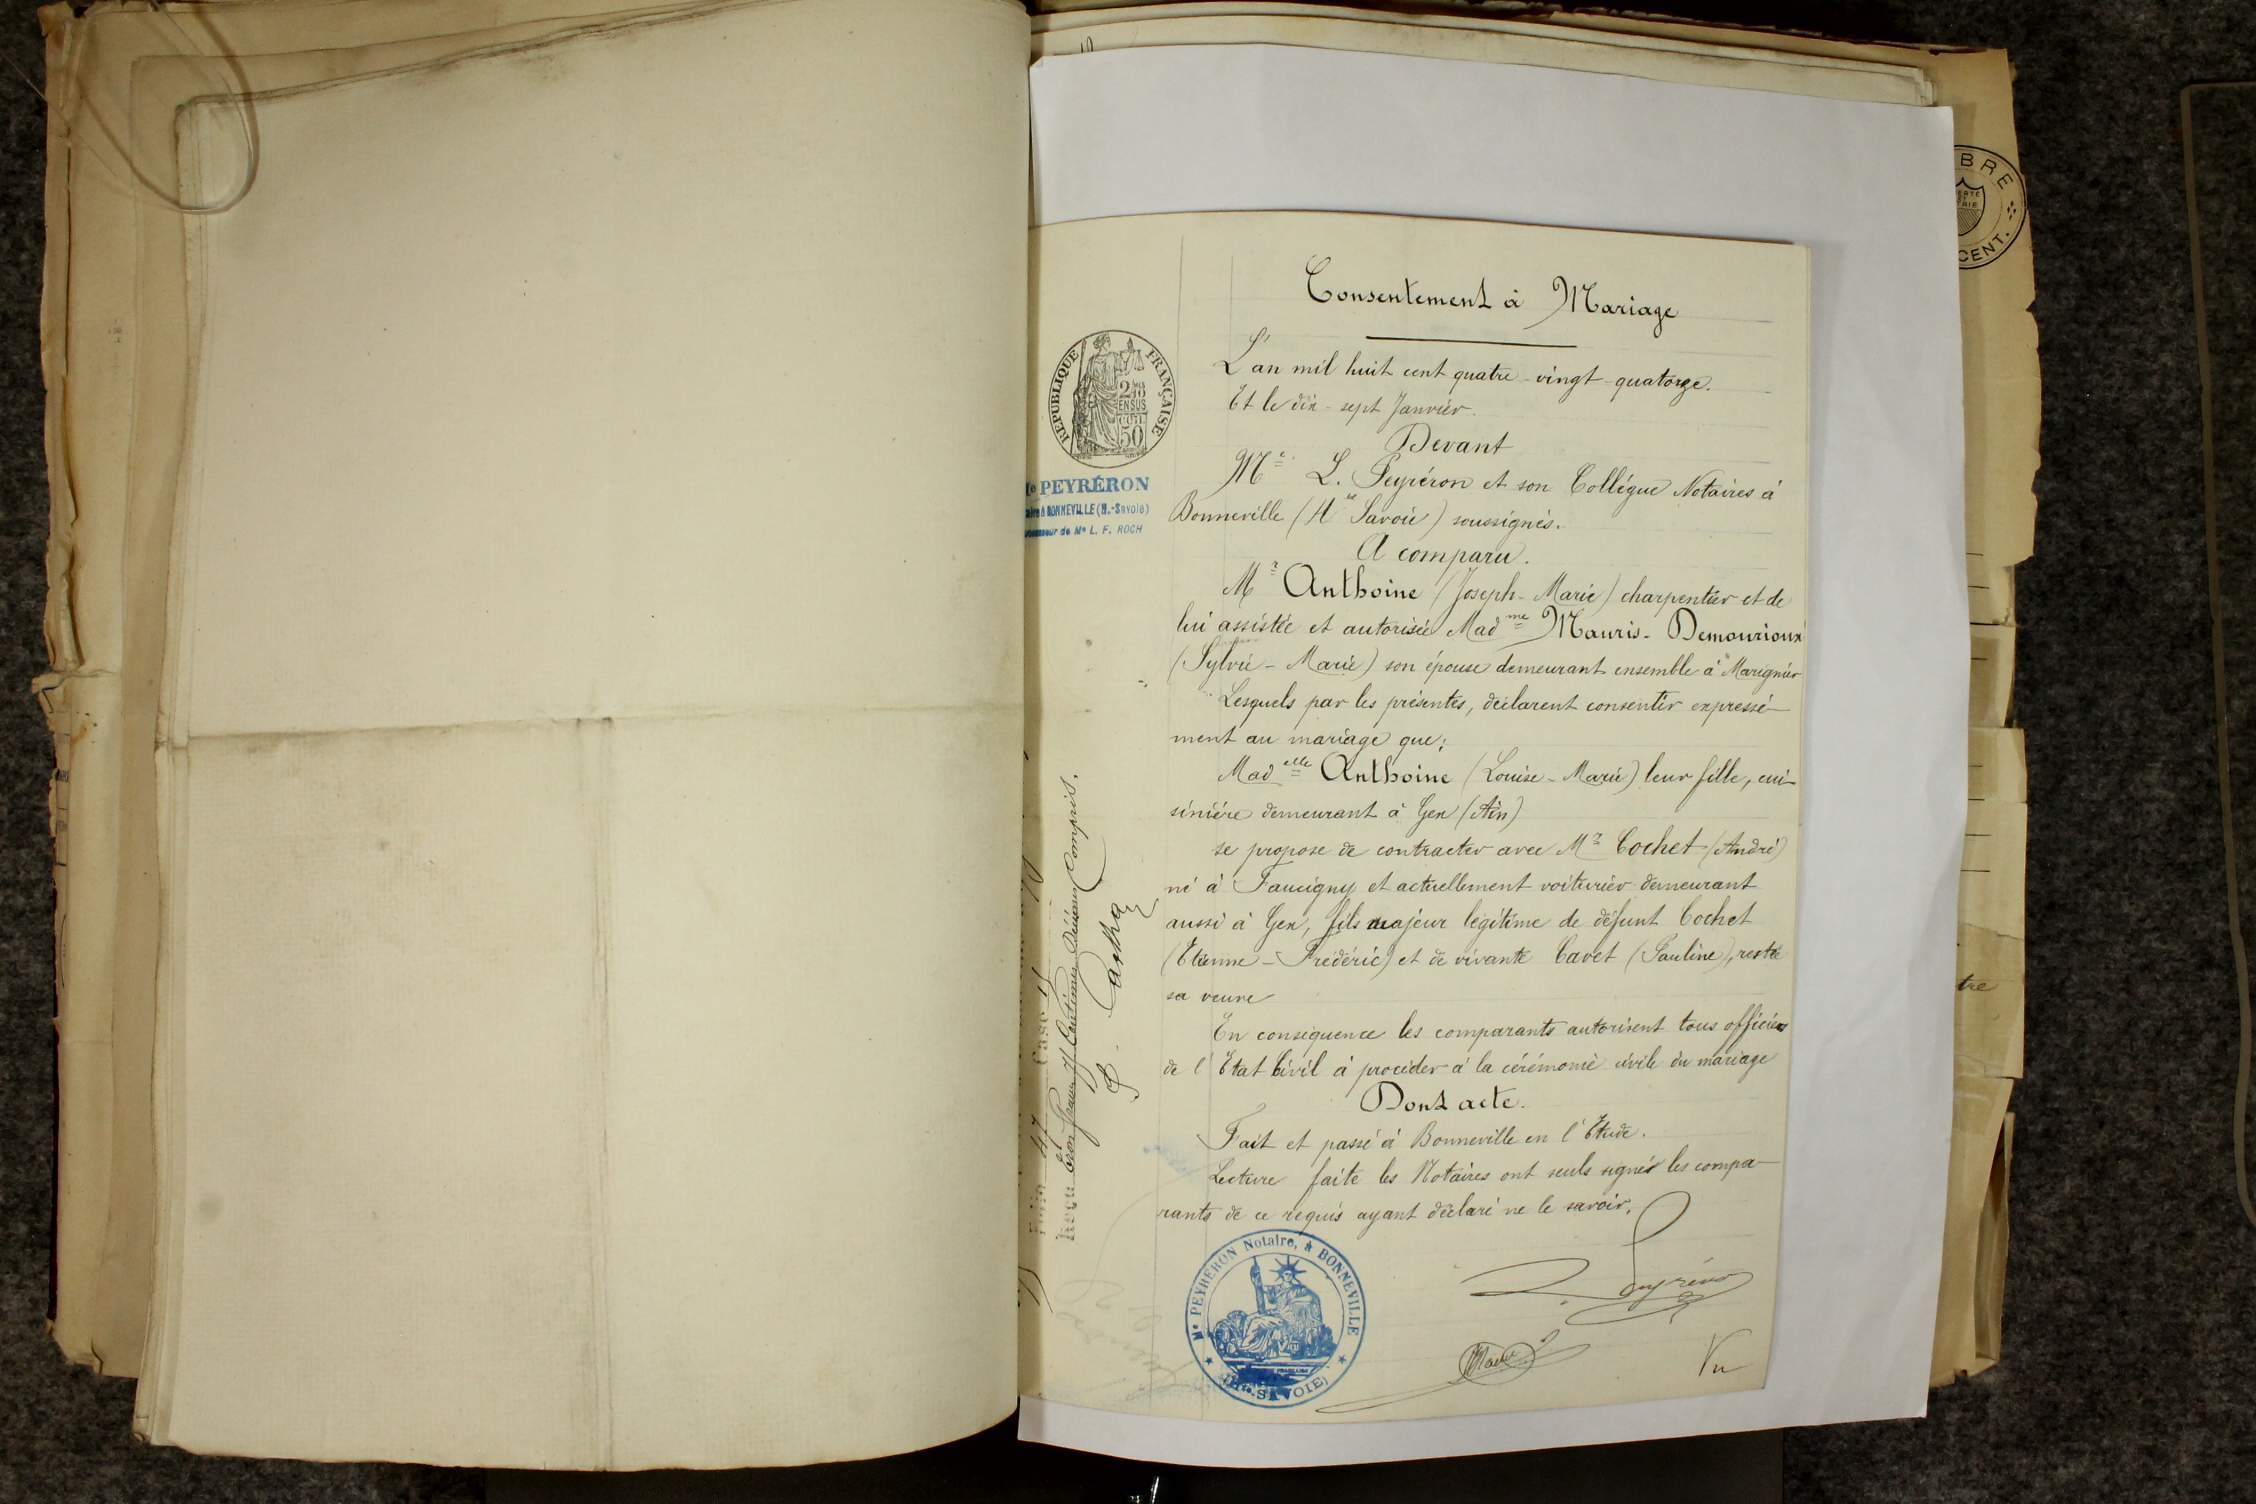 Consentement à Mariage
L'an mil huit cent quatre-vingt-quatorze.
Et le dix-sept Janvier.
Devant
Me L. Peyréron et son Collégue Notaires à
Bonneville (Hte Savoie) soussignés.
A comparu.
Mr Anthoine (Joseph-Marie) charpentier et de
lui assistée et autorisée Madme Mauris-Demourioux
(Sylvie-Marie) son épouse demeurant ensemble à Marignier
Lesquels par les présentes, déclarent consentir expressé-
ment au mariage que:
Madelle Anthoine (Louise-Marie) leur fille, cui-
sinière demeurant à Gex (Ain)
se propose de contracter avec Mr Cochet (André)
né à Faucigny et actuellement voiturier demeurant
aussi à Gex, fils majeur légitime de défunt Cochet
(Etienne-Frédéric) et de vivante Cavet (Pauline), restée
sa veuve
En conséquence les comparants autorisent tous officiers
de l'Etat Civil à procéder à la cérémonie civile du mariage
Dont acte.
Fait et passé à Bonneville en l'Etude.
Lecture faite les Notaires ont seuls signés les compa-
rants de ce requis ayant déclaré ne le savoir.
L. Peyréron
Vu
RÉPUBLIQUE FRANÇAISE
50
Me PEYRÉRON
à BONNEVILLE (H.-Savoie)
de Me L. F. ROCH
Case
Reçu trois francs Centimes Décimes Compris.
Me PEYRÉRON Notaire, à BONNEVILLE
(Hte. SAVOIE)
BRE
CENT.
tre